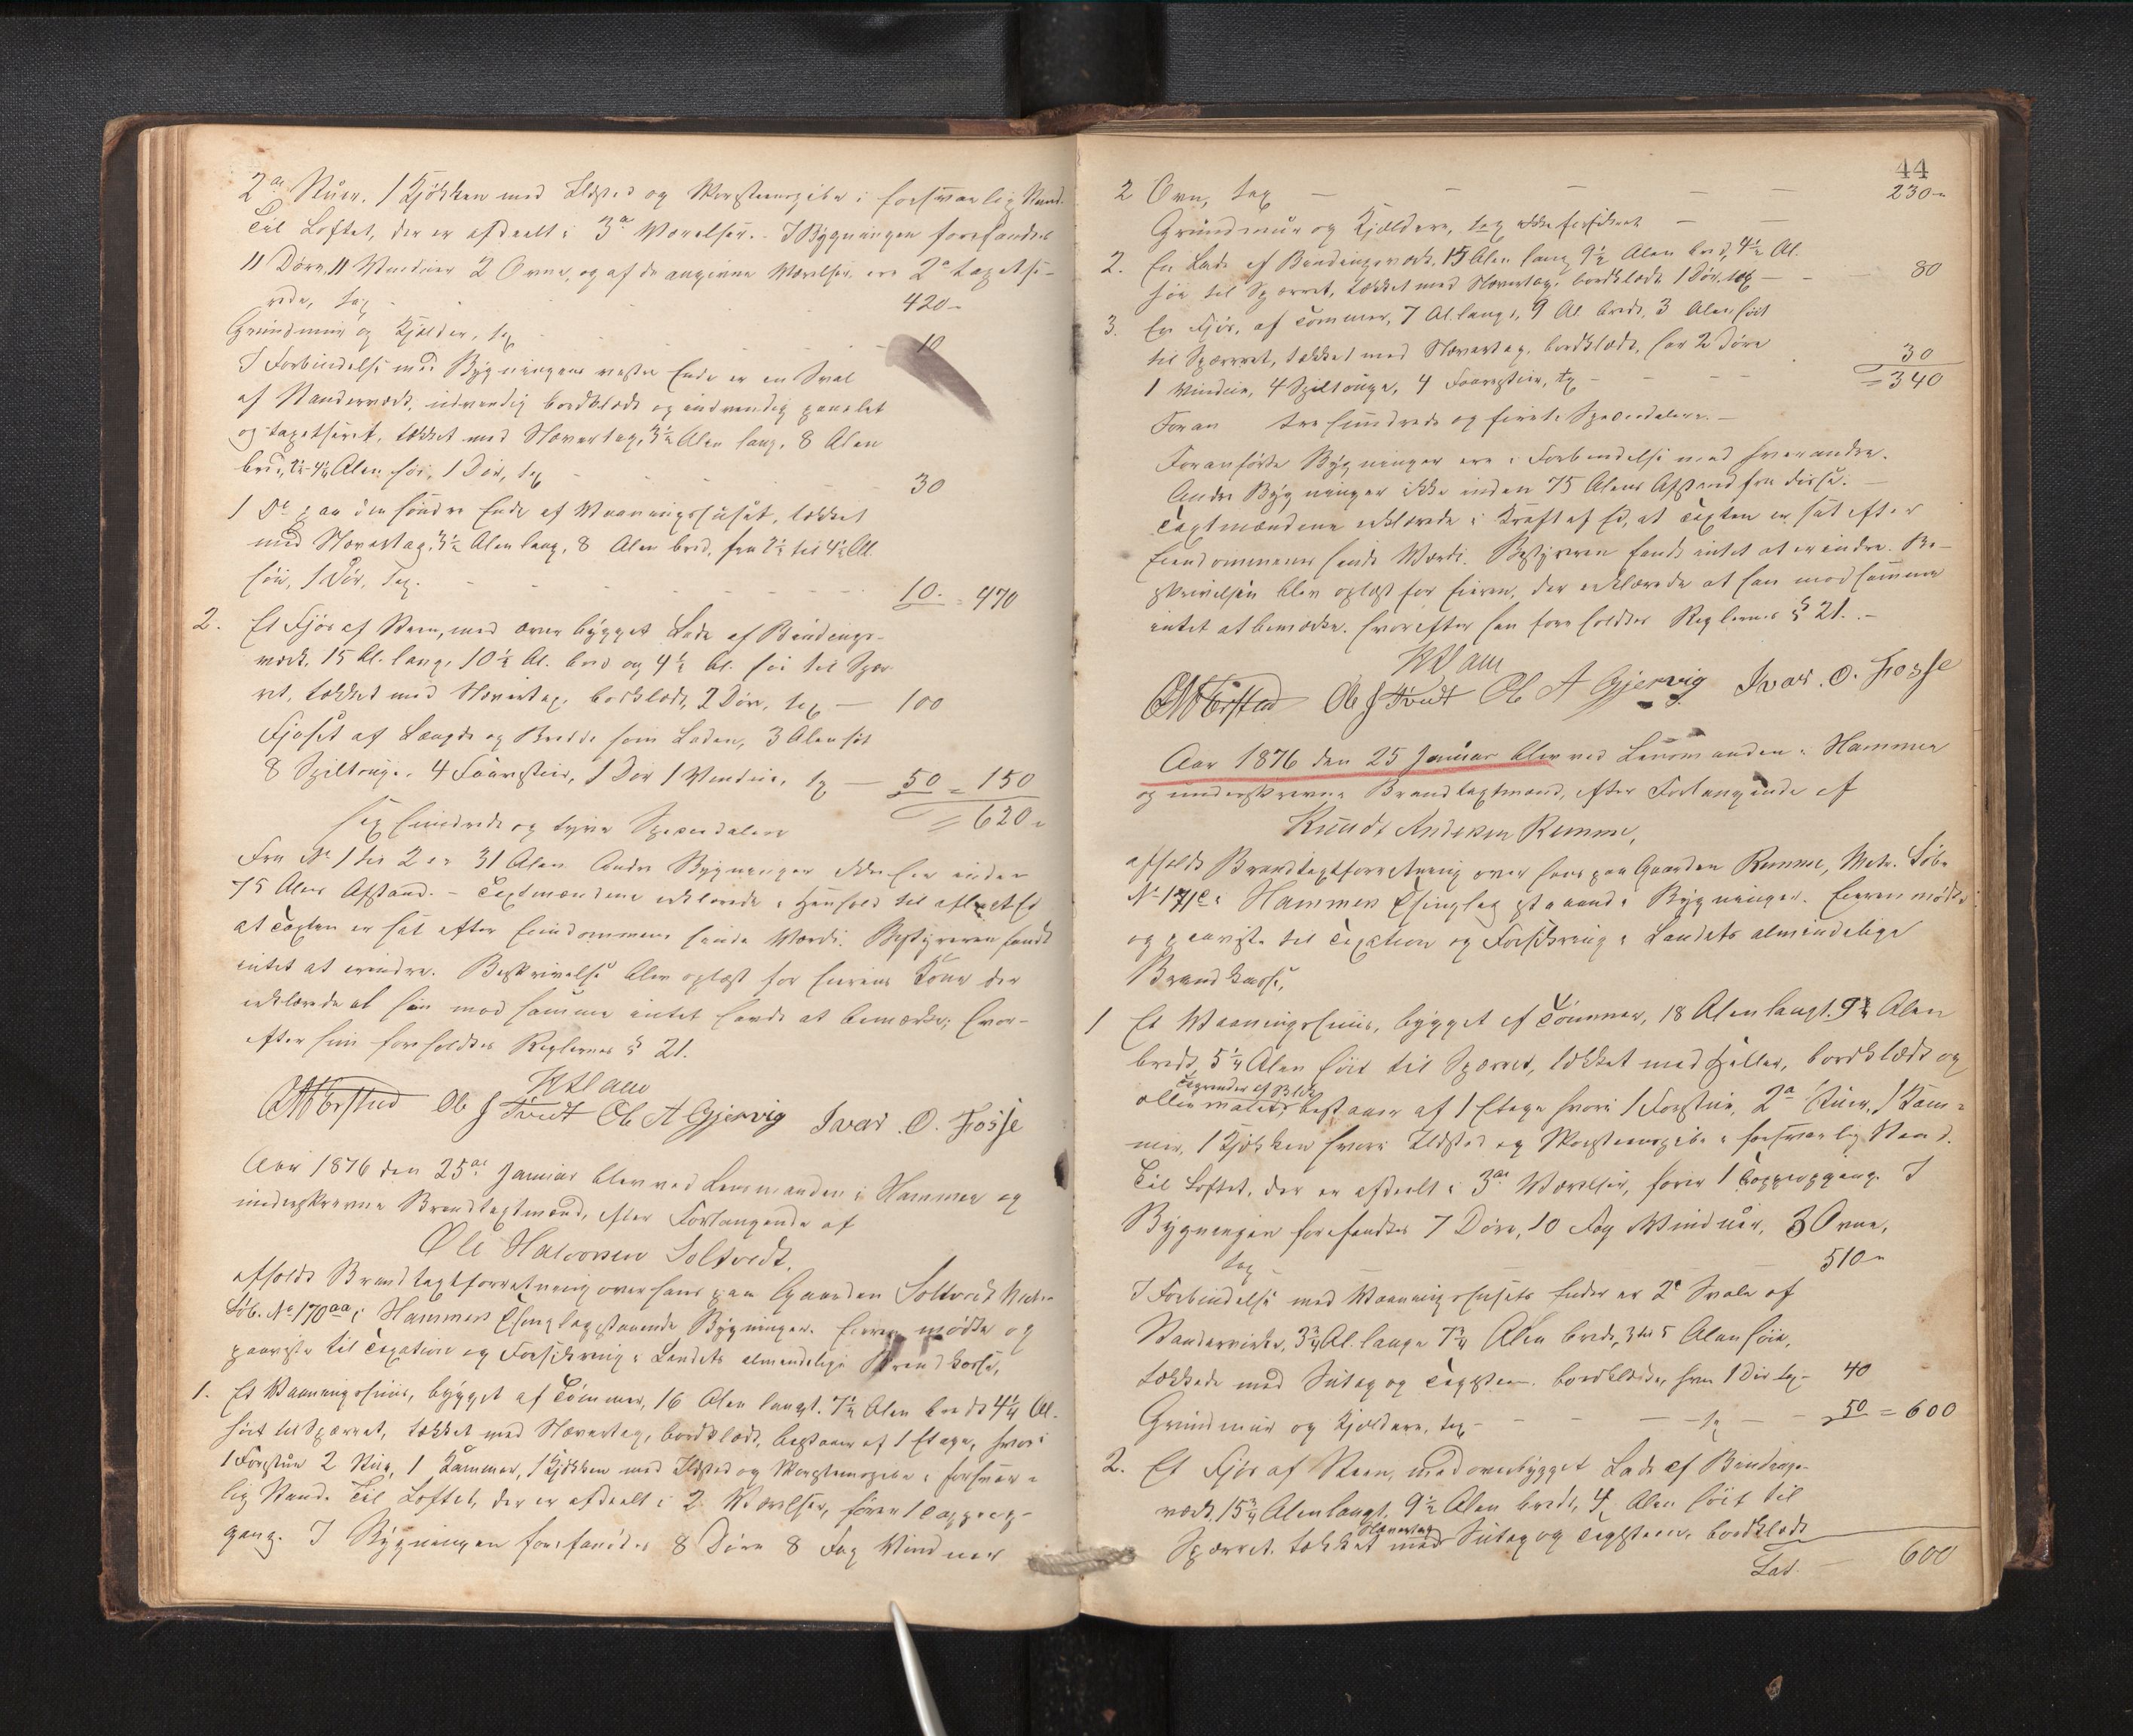 2de Stuer, 1 Kjøkken med Ildsted og Skorsteenspibe i forsvarlig Stand.
Til Loftet, der er afdeelt i 3de Værelser. I Bygningen forefandtes
11 Døre, 11 Vinduer 2 Ovne, og af de angivne Værelser ere 2de tapetse-
rede, tax 420 -
Grundmuur og Kjelder, tax 10
I Forbindelse med Bygningens vestre Ende er en Sval
af Standerverk, udvendig bordklædt og indvendig panelet
og tapetseret, tækket med Nævertag, 3½ Alen lang, 8 Alen
bred, 4½ Alen høi, 1 Dør, tax 30
1 do paa den søndre Ende af Vaaningshuset, tækket
med Nævertag, 3½ Alen lang, 8 Alen bred, fra 2½ til 4½ Al.
høi, 1 Dør, Tax. 10. = 470
2. Et Fjøs af Steen, med overbygget Lade af Bindings-
værk, 15 Al. lang, 10½ Al. bred og 4½ Al. høi til Spær-
ret, tækket med Nævertag, bordklædt, 2 Døre, tax — 100
Fjøset af Længde og Bredde som Laden, 3 Alen høit
8 Spiltouge, 4 Faarestier, 1 Dør 1 Vindue, tx — 50 = 150
= 620 -
Sex hundrede og tyve Speciedalere
Fra No 1 til 2 er 31 Alen. Andre Bygninger ikke her inden
75 Alens Afstand. - Taxtmændene erklærede i Henhold til aflagt Ed
at Taxten er sat efter Eiendommens sande Værdi. Bestyreren fandt
intet at erindre. Beskrivelse blev oplæst for Eierens Kone der
erklærede at hun mod samme intet havde at bemærke; hvor-
efter hun foreholdtes Reglernes § 21.
Ole J Tvedt Ole A Gjervig Ivar. O. Fosse
Aar 1876 den 25de Januar blev ved Lensmanden i Hammer og
underskrevne Brandtaxtmænd, efter Forlangende af
Ole Halvorsen Soltvedt.
afholdt Brandtaxtforretning over hans paa Gaarden Soltvedt Matr.
Løb. No 170aa i Hammers Thinglag staaende Bygninger. Eieren mødte og
paaviste til Taxation og Forsikring i Landets almindelige Brandkasse,
1. Et Vaaningshuus, bygget af Tømmer, 16 Alen langt, 7½ Alen bredt 4¼ Al.
høit til Spærret, tækket med Nævertag, bordklædt, bestaaer af 1 Etage, hvori
1 Forstue 2 Stuer, 1 Kammer, 1 Kjøkken med Ildsted og Skorsteenspibe i forsvar-
lig Stand. Til Loftet, der er afdeelt i 2 Værelser, fører 1 Trappeop-
gang. I Bygningen forefandtes 8 Døre 8 Fag Vinduer
44
2 Ovne, tax — — — — 230 -
Grundmuur og Kjeldere, tax ikke forsikret — —
2. En Lade af Bindingsværk, 15 Alen lang 9½ Alen bred, 4½ Al.
høi til Spærret, tækket med Nævertag, bordklædt 1 Dør, tax — — 80
3. Et Fjøs, af Tømmer, 7 Al. langt, 9 Al. bredt, 3 Alen høit
til Spærret, tækket med Nævertag, bordklædt, har 2 Døre
1 Vindue, 4 Spiltouge, 4 Faarestier, tx — — — 30
= 340
Foran tre hundrede og firti Speciedalere. —
Foranførte Bygninger ere i Forbindelse med hverandre.
Andre Bygninger ikke inden 75 Alens Afstand fra disse. —
Taxtmændene erklærede i Kraft af Ed, at Taxten er sat efter
Eiendommens sande Værdi. Bestyreren fandt intet at erindre. Be-
skrivelsen blev oplæst for Eieren, der erklærede at han mod samme
intet at bemærke. hvorefter han foreholdtes Reglernes § 21. -
Ole J Tvedt Ole A Gjervig Ivar. O. Fosse
Aar 1876 den 25 Januar blev ved Lensmanden i Hammer
og underskrevne Brandtaxtmænd, efter Forlangende af
Knudt Andersen Romme,
afholdt Brandtaxtforretning over hans paa Gaarden Romme, Matr. Løb.
No 171c i Hammers Thinglag staaende Bygninger. Eieren mødte
og paaviste til Taxation og Forsikring i Landets almindelige
Brandkasse,
1 Et Vaaningshuus, bygget af Tømmer, 18 Alen langt, 9¾ Alen
bredt, 5¼ Alen høit til Spærret, tækket med Heller, bordklædt og
oliemalet, bestaaer af 1 Etage hvori 1 Forstue, 2de Stuer, 1 Kam-
mer, 1 Kjøkken hvori Ildsted og Skorsteenspibe i forsvarlig Stand.
Til Loftet, der er afdeelt i 3de Værelser, fører 1 Trappeopgang. I
Bygningen forefandtes 7 Døre, 10 Fag Vinduer, 3 Ovne,
tax 510 -
I Forbindelse med Vaaningshusets Ender er 2de Svale af
Standerverke, 3¾ Al. lange 7¾ Alen brede, 3 til 5 Alen høie,
tækkede med Sutag og Tagsteen, bordklædte, hver 1 Dør tx - 40
Grundmuur og Kjeldere, tax — — — tx — 50 = 600
2. Et Fjøs af Steen, med overbygget Lade af Bindings-
værk, 15¾ Alen langt, 9½ Alen bredt, 4 Alen høit til
Nævertag
Spærret, tækket med Sutag og Tagsteen, bordklædt
Lat. — 600